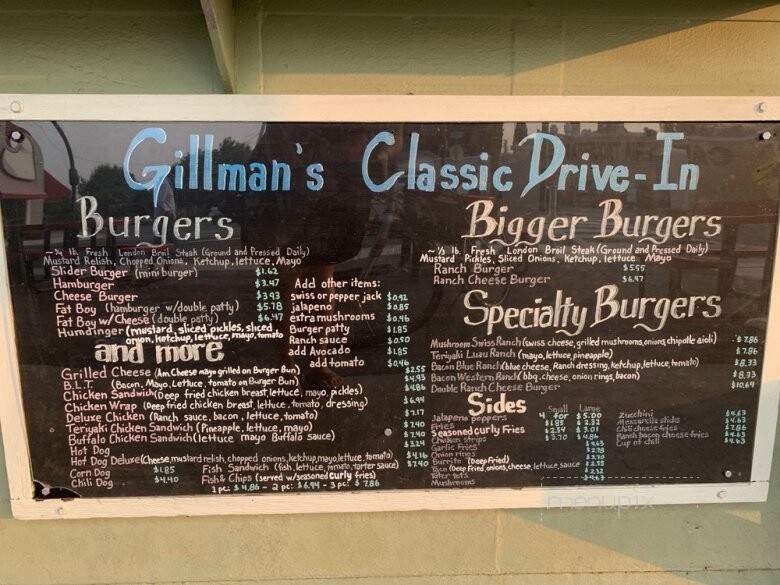 Gillman's Classic Drive-In
Burgers
~ ¼ lb. Fresh London Broil Steak (Ground and Pressed Daily)
Mustard Relish, Chopped Onions, Ketchup, lettuce, Mayo
Slider Burger (mini burger) $1.62
Hamburger $3.47
Cheese Burger $3.93
Fat Boy (hamburger w/double patty) $5.78
Fat Boy w/Cheese (double patty) $6.47
Humdinger (mustard, sliced pickles, sliced
onion, ketchup, lettuce, mayo, tomato
Add other items:
swiss or pepper jack $0.92
jalapeno $0.85
extra mushrooms $0.46
Burger patty $1.85
Ranch sauce $0.50
add Avocado $1.85
add tomato $0.46
and more
Grilled Cheese (Am. Cheese mayo grilled on Burger Bun) $2.55
B.L.T. (Bacon, Mayo, Lettuce, tomato on Burger Bun) $4.93
Chicken Sandwich (Deep fried chicken breast, lettuce, mayo, pickles) $4.86
Chicken Wrap (Deep fried chicken breast, lettuce, tomato, dressing) $6.94
Deluxe Chicken (Ranch sauce, bacon, lettuce, tomato) $7.17
Teriyaki Chicken Sandwich (Pineapple, lettuce, mayo) $7.40
Buffalo Chicken Sandwich (lettuce mayo Buffalo sauce) $7.40
Hot Dog $3.24
Hot Dog Deluxe (Cheese, mustard relish, chopped onions, ketchup, mayo, lettuce, tomato) $4.16
Corn Dog $1.85 Fish Sandwich (fish, lettuce, tomato, tarter sauce) $7.40
Chili Dog $4.40 Fish & Chips (served w/seasoned curly fries)
1 pc: $4.86 - 2 pc: $6.94 - 3 pc: $7.86
Bigger Burgers
~ ⅓ lb. Fresh London Broil Steak (Ground and Pressed Daily)
Mustard Pickles, Sliced Onions, Ketchup, lettuce Mayo
Ranch Burger $5.55
Ranch Cheese Burger $6.47
Specialty Burgers
Mushroom Swiss Ranch (swiss cheese, grilled mushrooms, onions, chipotle aioli) $7.86
Teriyaki Luau Ranch (mayo, lettuce, pineapple) $7.86
Bacon Blue Ranch (blue cheese, Ranch dressing, ketchup, lettuce, tomato) $8.33
Bacon Western Ranch (bbq. cheese, onion rings, bacon) $8.33
Double Ranch Cheese Burger $10.64
Sides
Small Large
Jalapeno peppers 4 for $5.00
Fries $1.85 $2.32
Seasoned Curly Fries $2.54 $3.01
Chicken strips $3.70 $4.86
Garlic Fries
Onion rings
Burrito (Deep Fried)
Taco (Deep Fried, onions, cheese, lettuce, sauce
Tater Tots
Mushrooms
Zucchini $4.63
Mozzarella sticks $4.63
Chili cheese fries $7.86
Ranch bacon cheese fries $4.63
Cup of chili $4.63
menupix